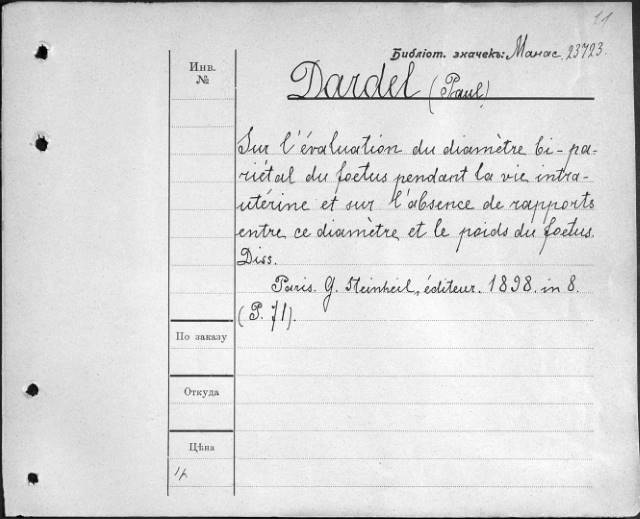 11
Библіот. значекъ: Манас. 23723.
Инв.
№
Dardel (Paul)
Sur l'évaluation du diamètre bi-pa-
riétal du foetus pendant la vie intra-
utérine et sur l'absence de rapports
entre ce diamètre et le poids du foetus.
Diss.
Paris. G. Steinheil, éditeur. 1898. in 8.
(P. 71).
По заказу
Откуда
Цѣна